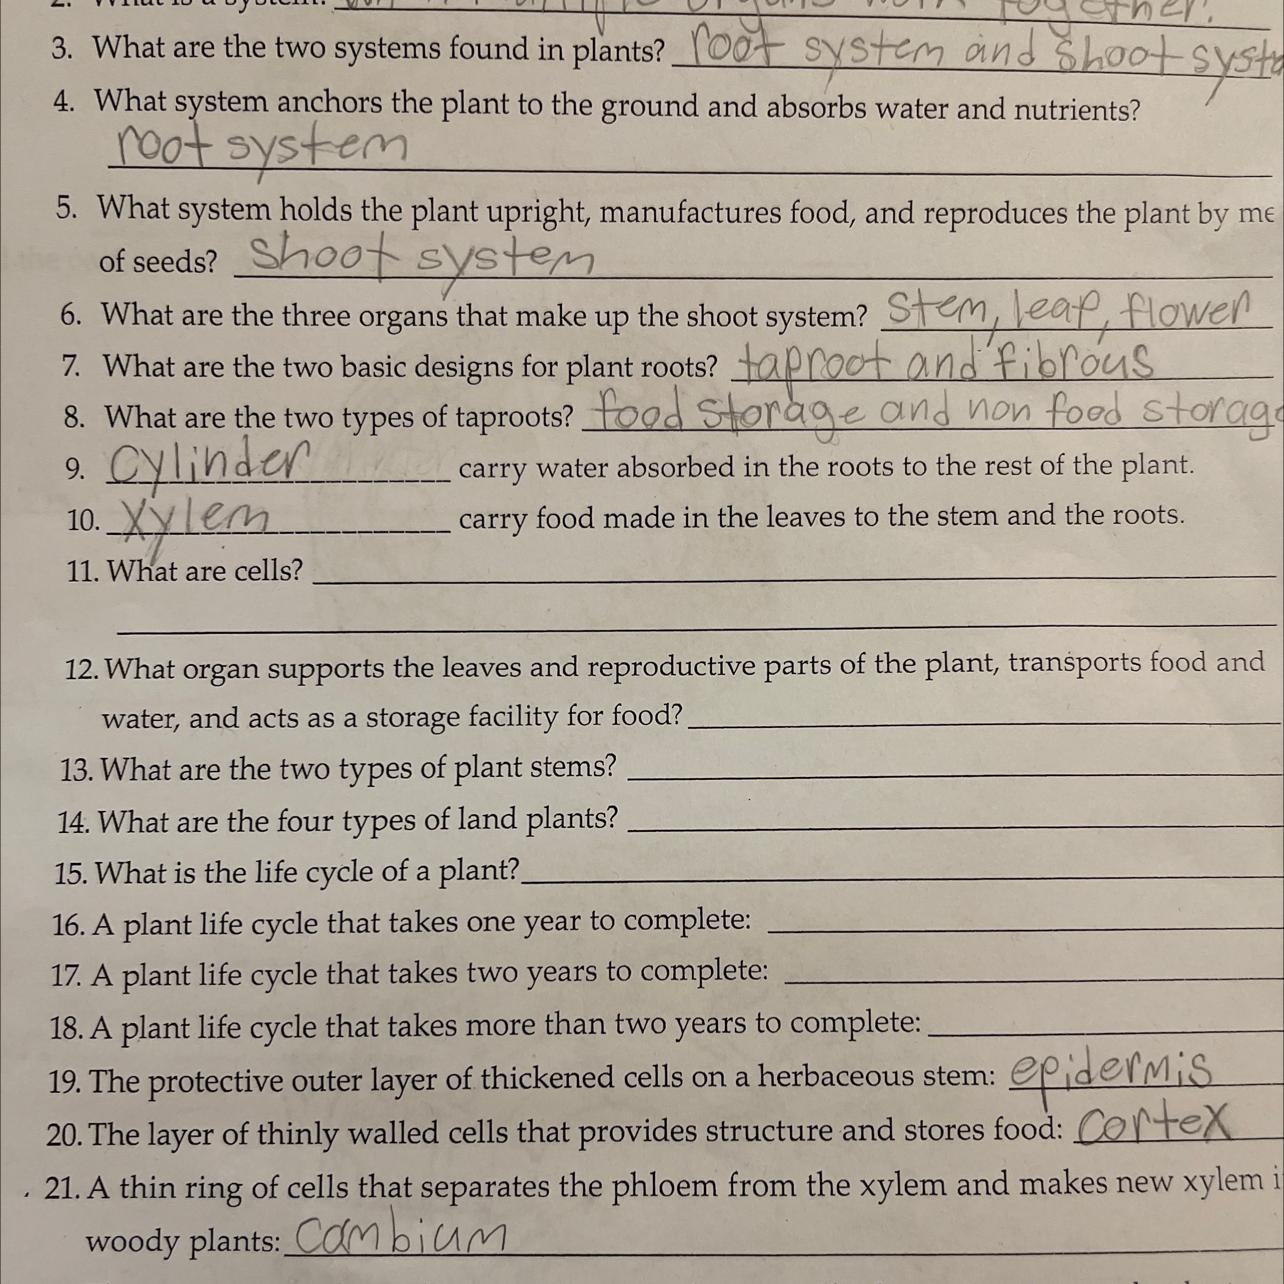 2. What is a system? organs work together.
3. What are the two systems found in plants? root system and shoot syste
4. What system anchors the plant to the ground and absorbs water and nutrients?
root system
5. What system holds the plant upright, manufactures food, and reproduces the plant by me
of seeds? shoot system
6. What are the three organs that make up the shoot system? Stem, leaf, flower
7. What are the two basic designs for plant roots? taproot and fibrous
8. What are the two types of taproots? food storage and non food storage
9. Cylinder carry water absorbed in the roots to the rest of the plant.
10. Xylem carry food made in the leaves to the stem and the roots.
11. What are cells?
12. What organ supports the leaves and reproductive parts of the plant, transports food and
water, and acts as a storage facility for food?
13. What are the two types of plant stems?
14. What are the four types of land plants?
15. What is the life cycle of a plant?
16. A plant life cycle that takes one year to complete:
17. A plant life cycle that takes two years to complete:
18. A plant life cycle that takes more than two years to complete:
19. The protective outer layer of thickened cells on a herbaceous stem: epidermis
20. The layer of thinly walled cells that provides structure and stores food: cortex
21. A thin ring of cells that separates the phloem from the xylem and makes new xylem i
woody plants: Cambium